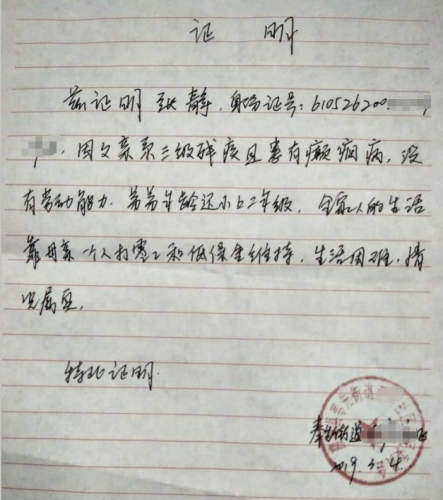 证 明
兹证明 张静，身份证号：610526200
，因父亲系三级残疾且患有癫痫病，没
有劳动能力．弟弟年龄还小上二年级．全家人的生活
靠母亲一个人打零工和低保金维持，生活困难，情
况属实。
特此证明．
奉先街道
2019.3.4.